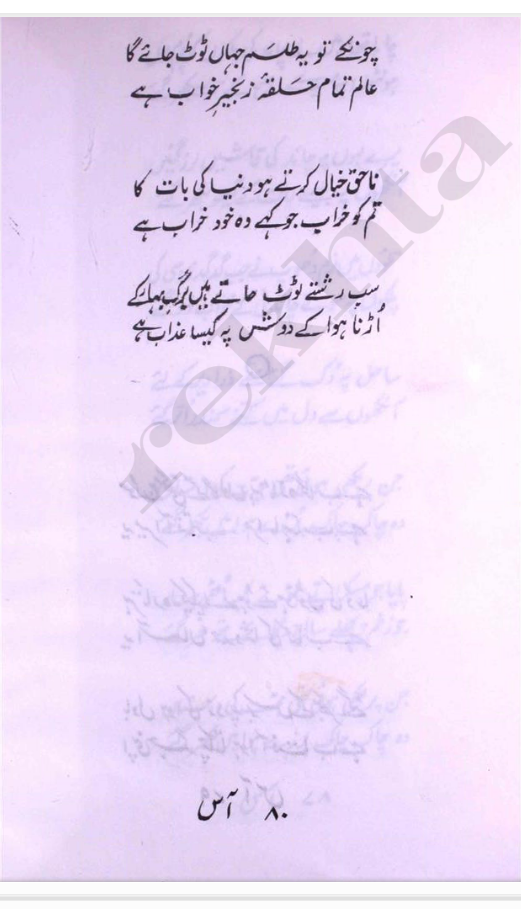 چونکے تو یہ طلسم جہاں ٹوٹ جائے گا
عالم تمام حلقۂ زنجیرِ خواب ہے
ناحق خیال کرتے ہو دنیا کی بات کا
تم کو خراب جو کہے وہ خود خراب ہے
سب رشتے ٹوٹ جاتے ہیں برگِ بہار کے
اُڑنا ہوا کے دوش پہ کیسا عذاب ہے
۸۰ آس
rekhta